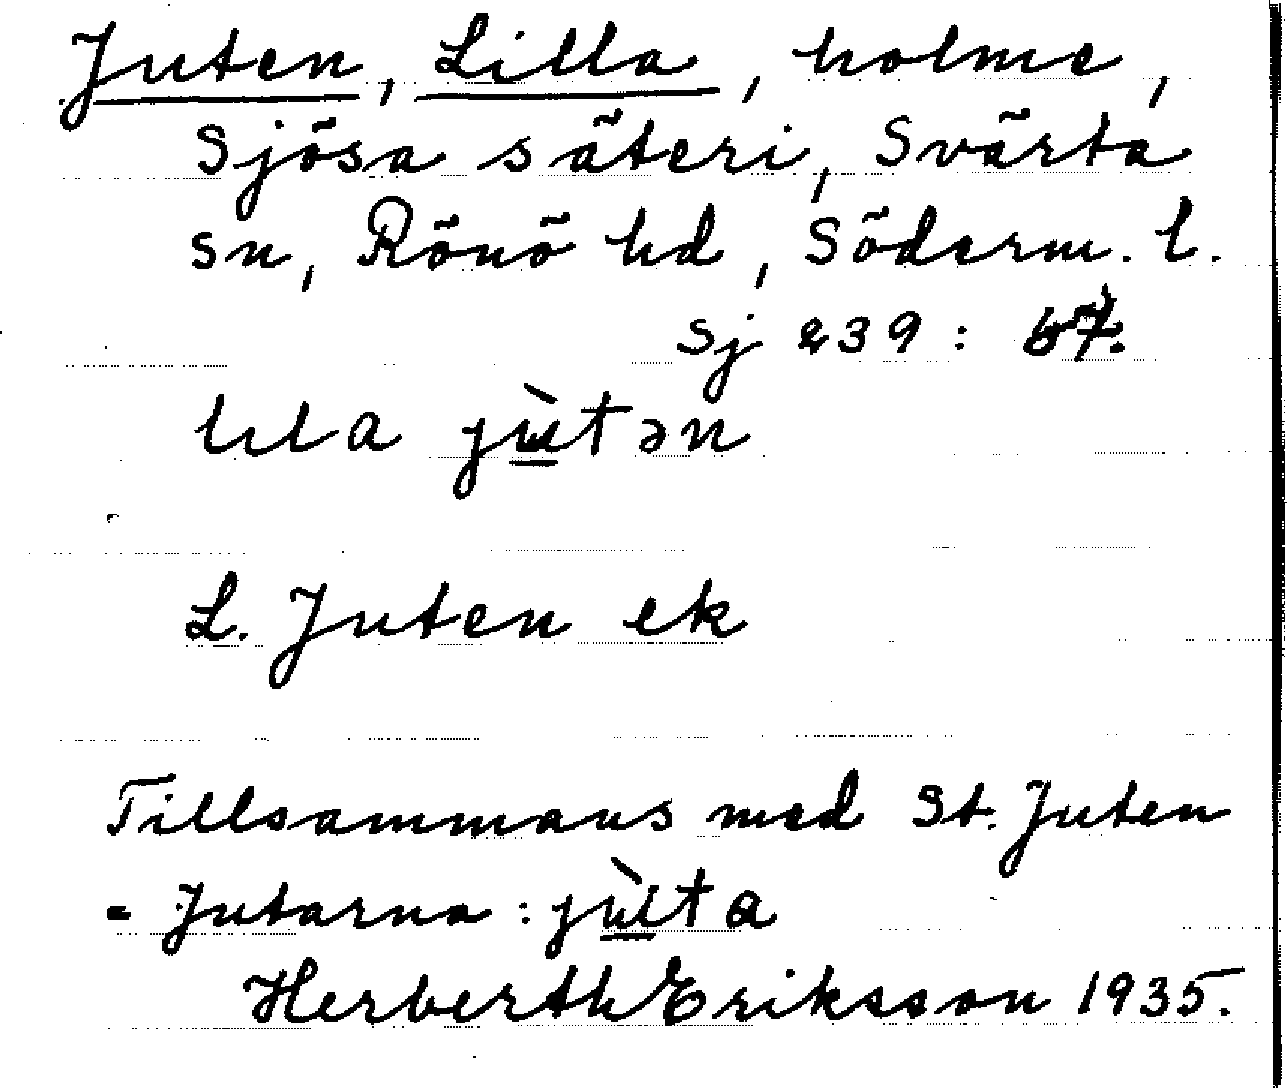 Juten, Lilla, holme,
Sjösa säteri, Svärta
sn, Rönö hd, Söderm. l.
Sj 239: 67.
lɩla jùtən
L. Juten ek
Tillsammans med St. Juten
= Jutarna: jùta
Herberth Eriksson 1935.